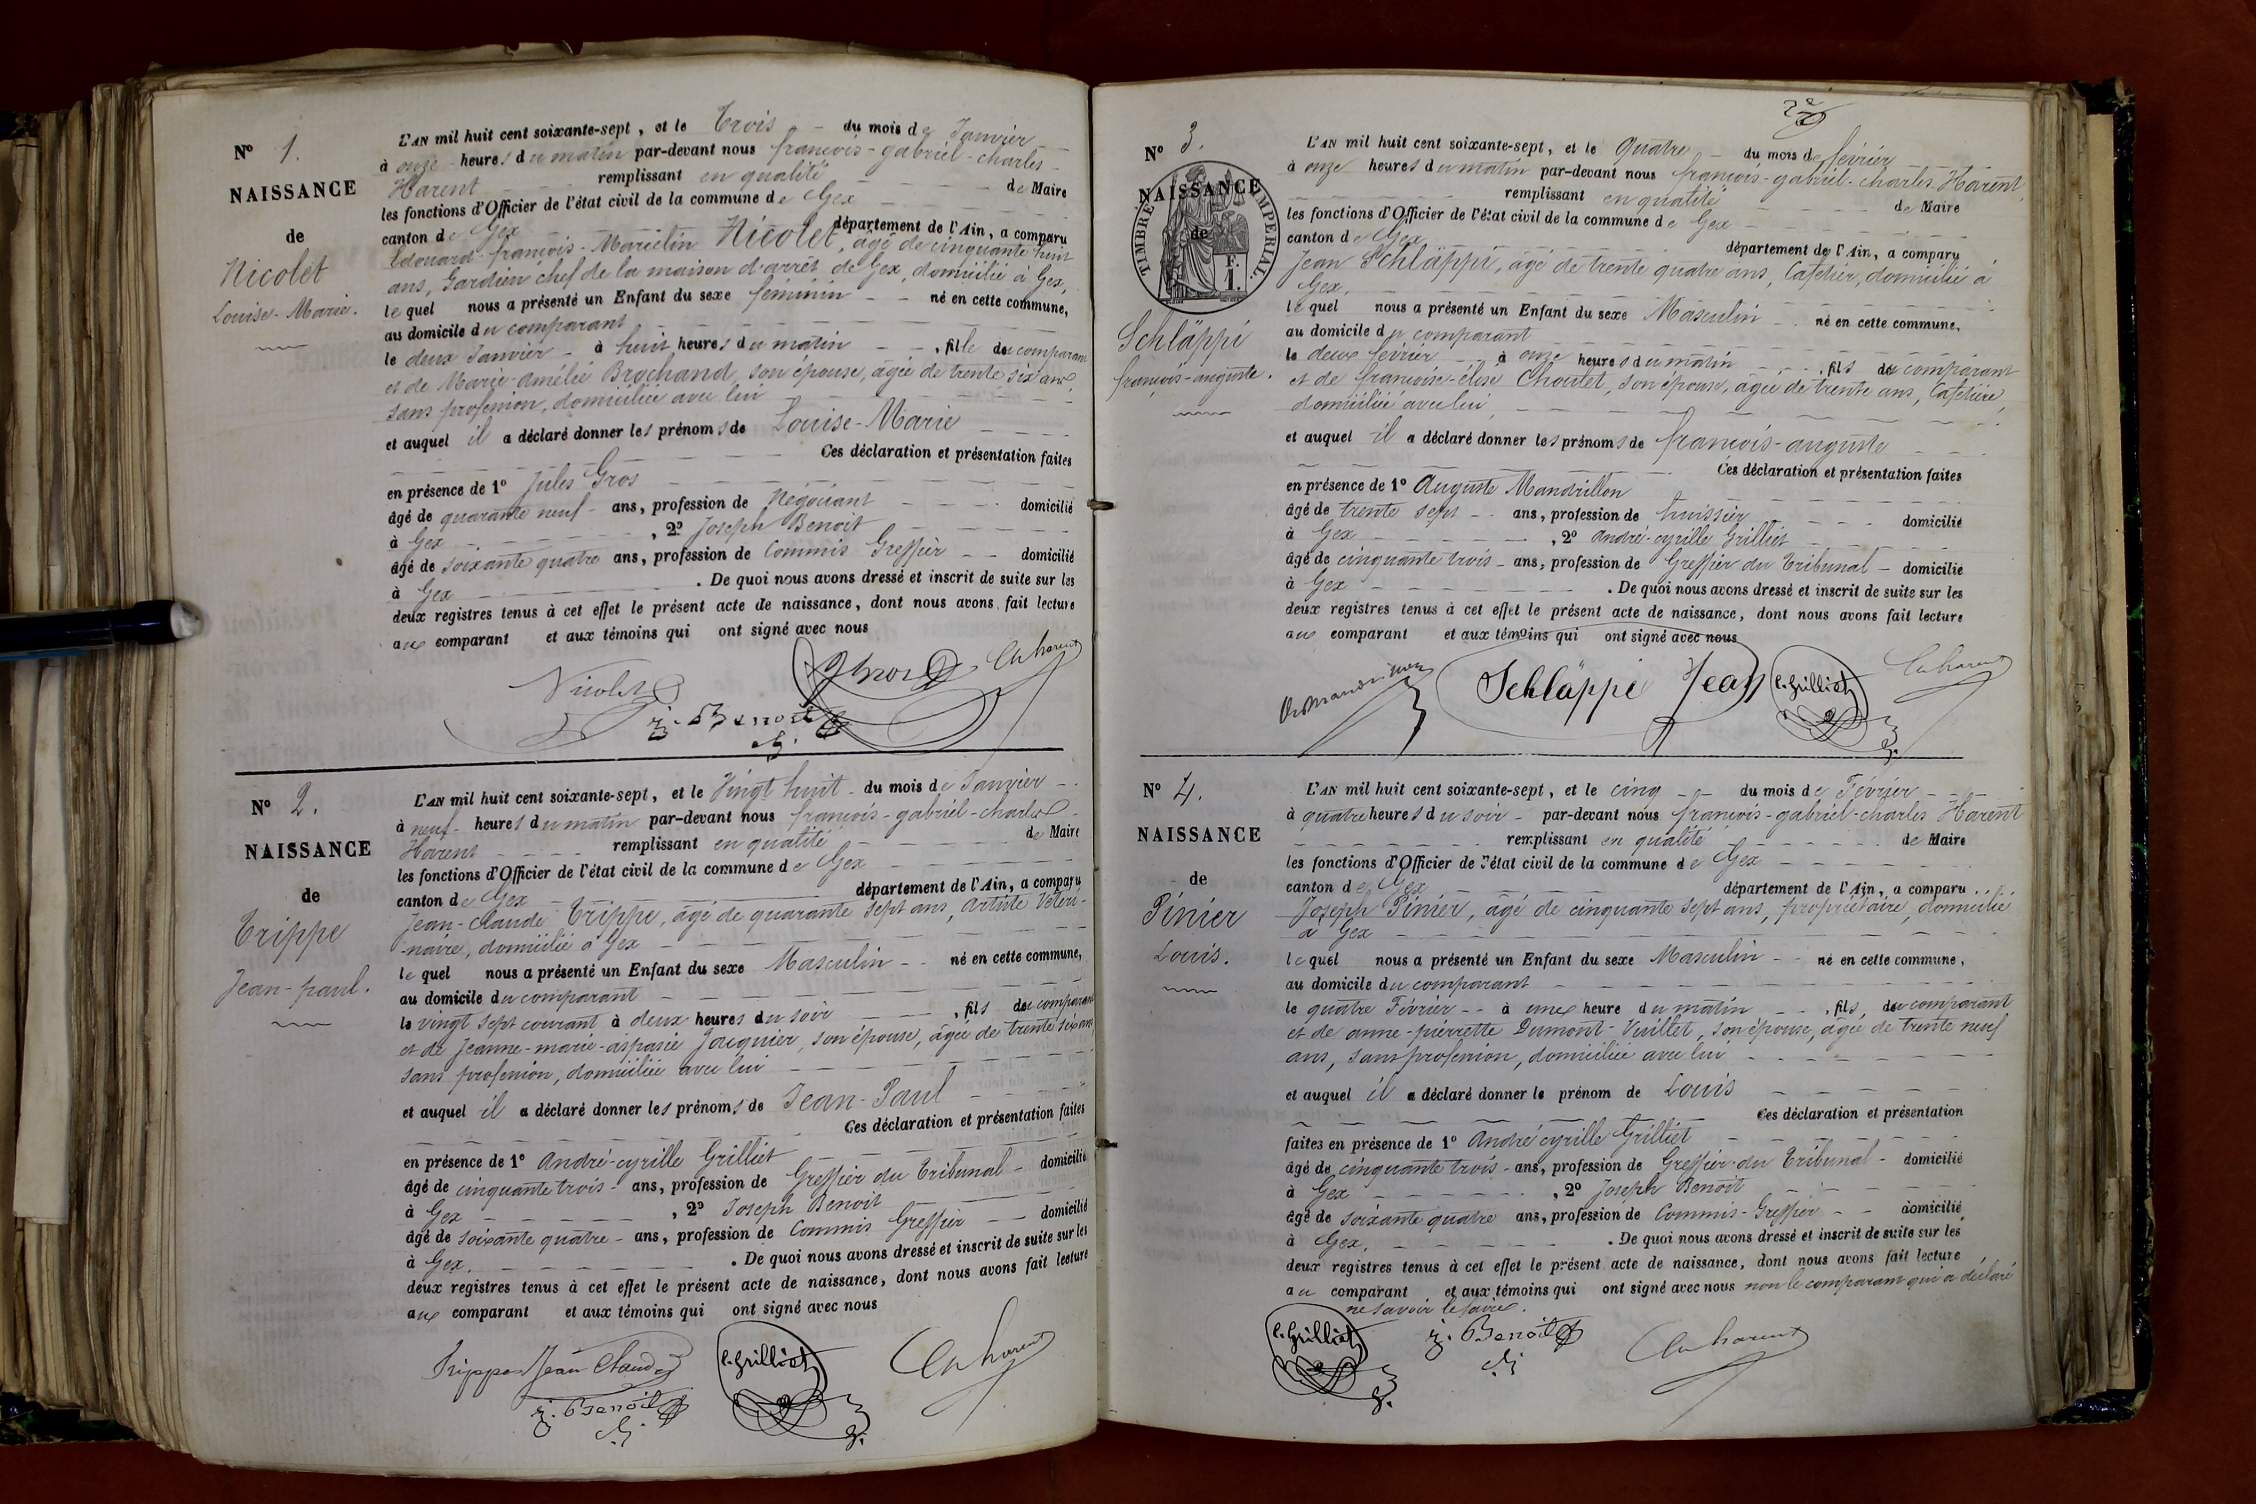 N° 1.
NAISSANCE
de
Nicolet
Louise-Marie.
L'AN mil huit cent soixante-sept, et le Trois - du mois de Janvier
à onze - heures du matin par-devant nous françois-gabriel-charles-
Harent remplissant en qualité de Maire
les fonctions d'Officier de l'état civil de la commune de Gex
canton de Gex département de l'Ain, a comparu
Edouard-françois-Marcelin Nicolet, âgé de cinquante huit
ans, Gardien chef de la maison d'arrêt de Gex, domicilié à Gex,
lequel nous a présenté un Enfant du sexe féminin - - né en cette commune,
au domicile du comparant
le deux Janvier - à huit heures du matin - - , fille du comparant
et de Marie-Amélie Brochand, son épouse, âgée de trente six ans,
sans profession, domiciliée avec lui
et auquel il a déclaré donner les prénoms de Louise-Marie
Ces déclaration et présentation faites
en présence de 1° Jules Gros
âgé de quarante neuf - ans, profession de Négociant domicilié
à Gex , 2° Joseph Benoit
âgé de soixante quatre ans, profession de Commis Greffier - - domicilié
à Gex . De quoi nous avons dressé et inscrit de suite sur les
deux registres tenus à cet effet le présent acte de naissance, dont nous avons fait lecture
aux comparant et aux témoins qui ont signé avec nous
Nicolet
J. Gros
Ch harent
j. Benoit
N° 2.
NAISSANCE
de
Trippe
Jean-paul.
L'AN mil huit cent soixante-sept, et le Vingt huit - du mois de Janvier - -
à neuf - heures du matin par-devant nous françois-gabriel-charles
Harent remplissant en qualité de Maire
les fonctions d'Officier de l'état civil de la commune de Gex
canton de Gex département de l'Ain, a comparu
Jean-Claude Trippe, âgé de quarante sept ans, Artiste Vétéri-
-naire, domicilié à Gex
lequel nous a présenté un Enfant du sexe Masculin - - né en cette commune,
au domicile du comparant
le vingt sept courant à deux heures du soir , fils du comparant
et de Jeanne-marie-aspasie Jacquier, son épouse, âgée de trente six ans
sans profession, domiciliée avec lui
et auquel il a déclaré donner les prénoms de Jean-Paul
Ces déclaration et présentation faites
en présence de 1° André-cyrille Grilliet
âgé de cinquante trois - ans, profession de Greffier du Tribunal - domicilié
à Gex , 2° Joseph Benoit
âgé de soixante quatre - ans, profession de Commis Greffier - - domicilié
à Gex. . De quoi nous avons dressé et inscrit de suite sur les
deux registres tenus à cet effet le présent acte de naissance, dont nous avons fait lecture
aux comparant et aux témoins qui ont signé avec nous
Trippe Jean Claude
C. Grilliet
Ch harent
j. Benoit
N° 3.
NAISSANCE
de
TIMBRE IMPERIAL.
F.
1.
Schläppi
françois-auguste.
L'AN mil huit cent soixante-sept, et le Quatre - du mois de février
à onze heures du matin par-devant nous françois-gabriel-charles Harent,
remplissant en qualité de Maire
les fonctions d'Officier de l'état civil de la commune de Gex
canton de Gex département de l'Ain, a comparu
Jean Schläppi, âgé de trente quatre ans, Cafetier, domicilié à
Gex.
lequel nous a présenté un Enfant du sexe Masculin - né en cette commune,
au domicile du comparant
le deux février - - à onze heures du matin , fils du comparant
et de françoise-élise Choulet, son épouse, âgée de trente ans, Cafetière,
domiciliée avec lui,
et auquel il a déclaré donner les prénoms de françois-auguste
Ces déclaration et présentation faites
en présence de 1° Auguste Mandrillon
âgé de trente sept - - ans, profession de huissier domicilié
à Gex , 2° André-cyrille Grilliet
âgé de cinquante trois - ans, profession de Greffier du Tribunal - domicilié
à Gex . De quoi nous avons dressé et inscrit de suite sur les
deux registres tenus à cet effet le présent acte de naissance, dont nous avons fait lecture
aux comparant et aux témoins qui ont signé avec nous
Mandrillon
Schläppi Jean
C. Grilliet
Ch harent
N° 4.
NAISSANCE
de
Pinier
Louis.
L'AN mil huit cent soixante-sept, et le cinq - - du mois de Février
à quatre heures du soir - par-devant nous françois-gabriel-charles Harent
remplissant en qualité de Maire
les fonctions d'Officier de l'état civil de la commune de Gex
canton de Gex département de l'Ain, a comparu
Joseph Pinier, âgé de cinquante sept ans, propriétaire, domicilié
à Gex
lequel nous a présenté un Enfant du sexe Masculin - - né en cette commune,
au domicile du comparant
le quatre Février - - à une heure du matin - - , fils, du comparant
et de anne-pierrette Dumont-Vuillet, son épouse, âgée de trente neuf
ans, sans profession, domiciliée avec lui
et auquel il a déclaré donner le prénom de Louis
Ces déclaration et présentation
faites en présence de 1° André cyrille Grilliet
âgé de cinquante trois - ans, profession de Greffier du Tribunal - domicilié
à Gex , 2° Joseph Benoit
âgé de soixante quatre ans, profession de Commis-Greffier - - domicilié
à Gex. . De quoi nous avons dressé et inscrit de suite sur les
deux registres tenus à cet effet le présent acte de naissance, dont nous avons fait lecture
au comparant et aux témoins qui ont signé avec nous non le comparant qui a déclaré
ne savoir le faire.
C. Grilliet
j. Benoit
Ch harent